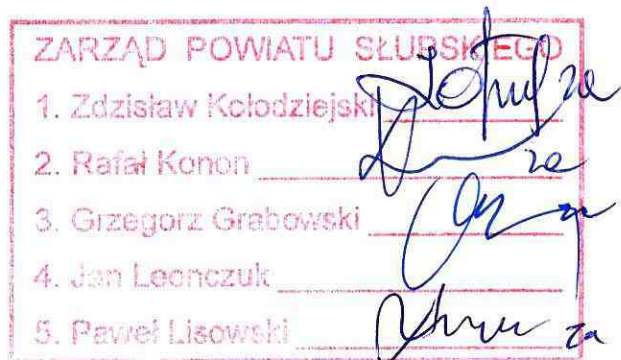 ZARZĄD POWIATU SŁUBSKIEGO
1. Zdzisław Kołodziejski za
2. Rafał Konon za
3. Grzegorz Grabowski
4. Jan Leonczuk
5. Paweł Lisowski za